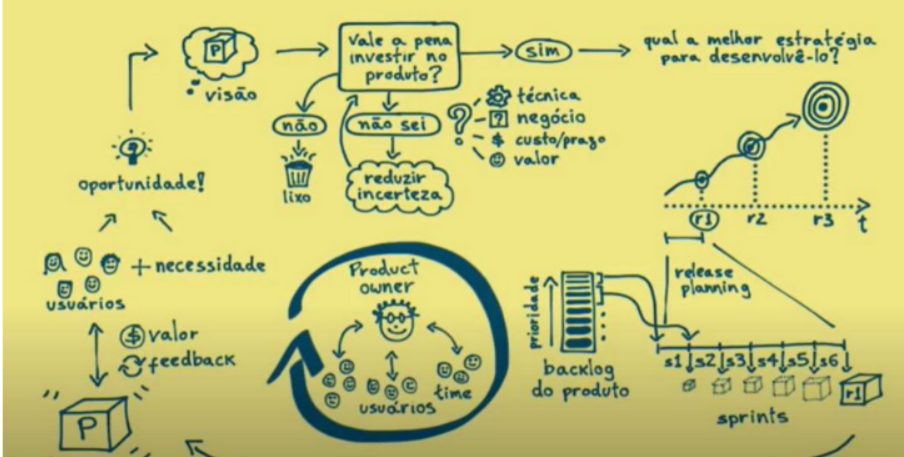 P
visão
Vale a pena
investir no
produto?
sim
qual a melhor estratégia
para desenvolvê-lo?
não
lixo
não sei
reduzir
incerteza
?
técnica
? negócio
$ custo/prazo
valor
oportunidade!
usuários
+ necessidade
$ valor
feedback
P
Product
owner
usuários
time
prioridade
backlog
do produto
r1 r2 r3 t
release
planning
s1 s2 s3 s4 s5 s6
r1
sprints